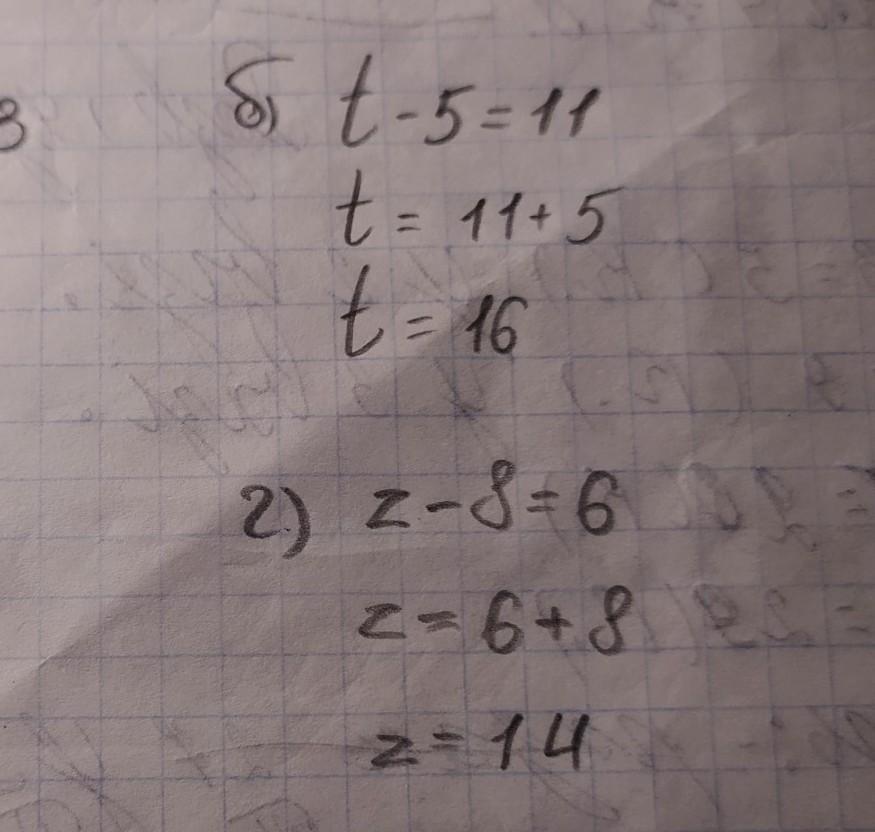 б) t - 5 = 11
t = 11 + 5
t = 16
г) z - 8 = 6
z = 6 + 8
z = 14